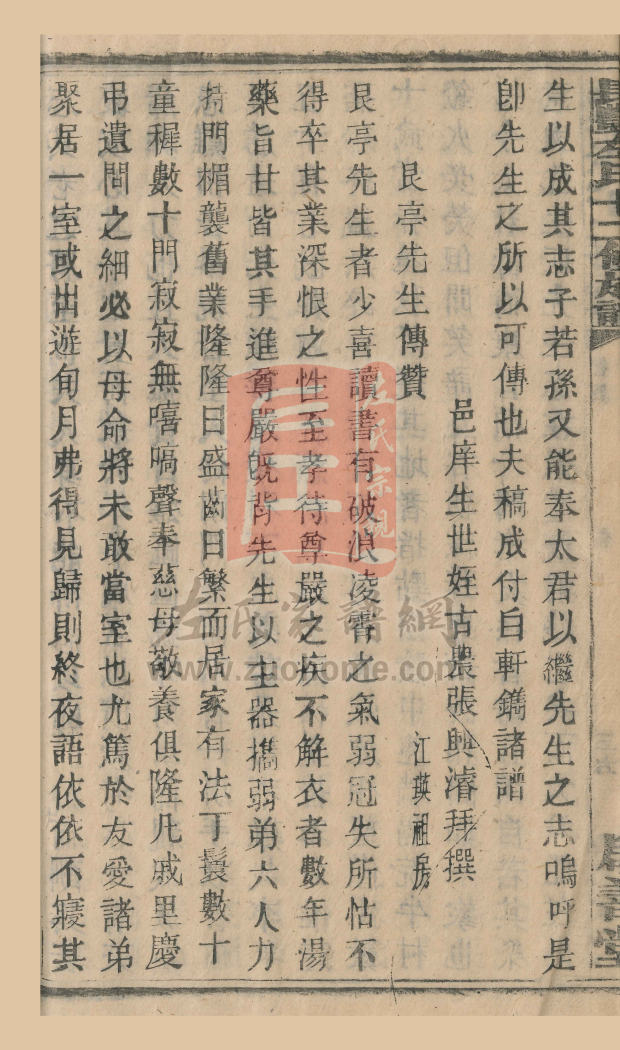 生以成其志子若孫又能奉太君以繼先生之志嗚呼是
卽先生之所以可傳也夫稿成付白軒鐫諸譜
邑庠生世姪古農張興濬拜撰
艮亭先生傳贊
江瑛祖房
艮亭先生者少喜讀書有破浪凌霄之氣弱冠失所怙不
得卒其業深恨之性至孝待尊嚴之疾不解衣者數年湯
藥旨甘皆其手進尊嚴旣背先生以主器攜弱弟六人力
持門楣襲舊業隆隆日盛齒日繁而居家有法丁鬟數十
童穉數十門寂寂無嘻嗃聲奉慈母敬養俱隆凡戚里慶
弔遺問之細必以母命將未敢當室也尤篤於友愛諸弟
聚居一室或出遊旬月弗得見歸則終夜語依依不寢其
左氏宗親
左氏家譜網
www.zuohome.com